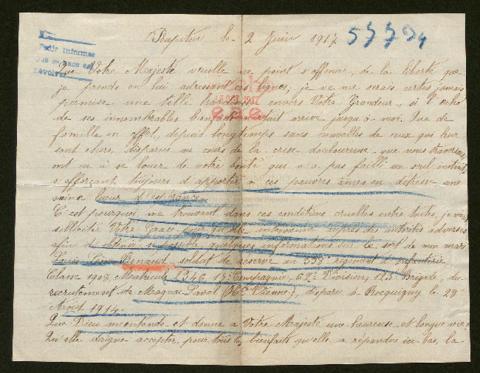 le 2 Juin 1917
57794
Que Votre Majesté veuille ne point s'offenser, de la liberté que
je prends en lui adressant ces lignes, je ne me serais certes jamais
permise une telle envers Votre Grandeur, si l'écho
de ses innombrables n'était arrivé jusqu'à moi. Que de
famille en effet, depuis longtemps sans nouvelles de ceux qui leur
sont chers, disparus au cours de la crise douloureuse que nous traversons
ont eu à se louer de votre bonté qui n'a pas failli un seul instant
s'efforçant toujours d'apporter à ces pauvres âmes en détresse une
C'est pourquoi me trouvant dans ces conditions cruelles entre toutes, je viens
Votre Grâce autorités adverses
afin d'obtenir si possible quelques informations sur le sort de mon mari
Renaud, soldat de réserve au 338e régiment d'infanterie
Classe 1907 Matricule 1346, Compagnie, 62e Division, 123 Brigade, du
recrutement de Magnac-Laval (Hte Vienne), disparu à Rocquigny le 28
Août 1914.
Que Dieu me entende et donne à Votre Majesté une heureuse et longue vie,
Qu'elle daigne accepter, pour tous les bienfaits qu'elle a répandus ici-bas, la